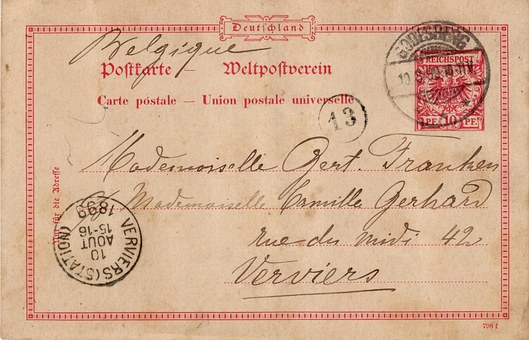 Deutschland
Belgique
Postkarte – Weltpostverein
Carte postale – Union postale universelle
GODESBERG
REICHSPOST
10 PF.
13
Mademoiselle Gert. Franken
Mademoiselle Camille Gerhard
rue du midi 42
Verviers
Nur für die Adresse
VERVIERS (STATION)
10
AOUT
15-16
1899
798 f